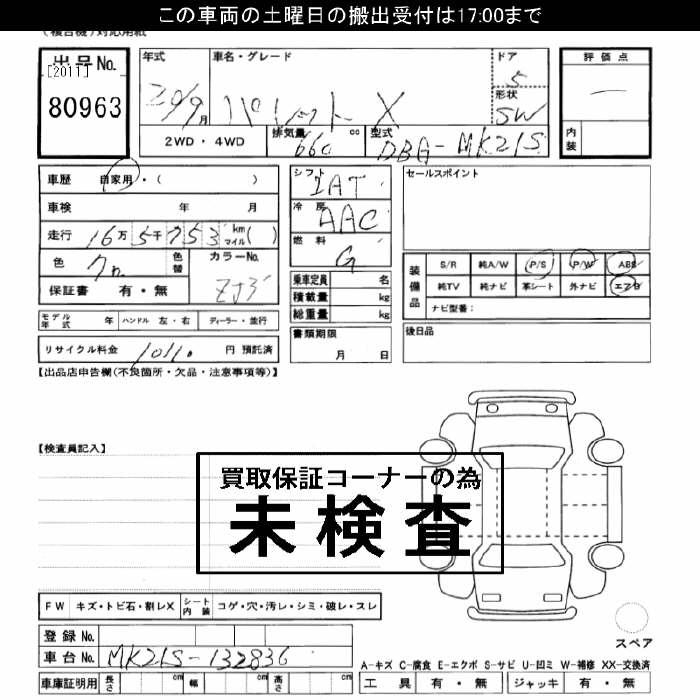 この車両の土曜日の搬出受付は17:00まで
(複合機)対応用紙
出品No.
[2011]
80963
年式
20/9月
車名・グレード
パレット X
ドア
5
形状
5W
評価点
内装
2WD・4WD
排気量 660 cc
型式 DBA-MK21S
車歴 自家用・( )
車検 年 月
走行 16万5千753 km マイル( )
色
色替
カラーNo.
ZJ3
保証書 有・無
シフト
IAT
冷房
AAC
燃料
G
乗車定員 名
積載量 kg
総重量 kg
セールスポイント
装備品
S/R 純A/W P/S P/W ABS
純TV 純ナビ 革シート 外ナビ エアB
ナビ型番:
モデル年式 年 ハンドル 左・右 ディーラー・並行
書類期限
月 日
後日品
リサイクル料金 円 預託済
【出品店申告欄(不良箇所・欠品・注意事項等)】
【検査員記入】
買取保証コーナーの為
未検査
FW キズ・トビ石・割レX シート内装 コゲ・穴・汚レ・シミ・破レ・スレ
登録No.
車台No. MK21S-132836
車庫証明用 長さ cm 幅 cm 高さ cm
スペア
A-キズ C-腐食 E-エクボ S-サビ U-凹ミ W-補修 XX-交換済
工具 有・無 ジャッキ 有・無